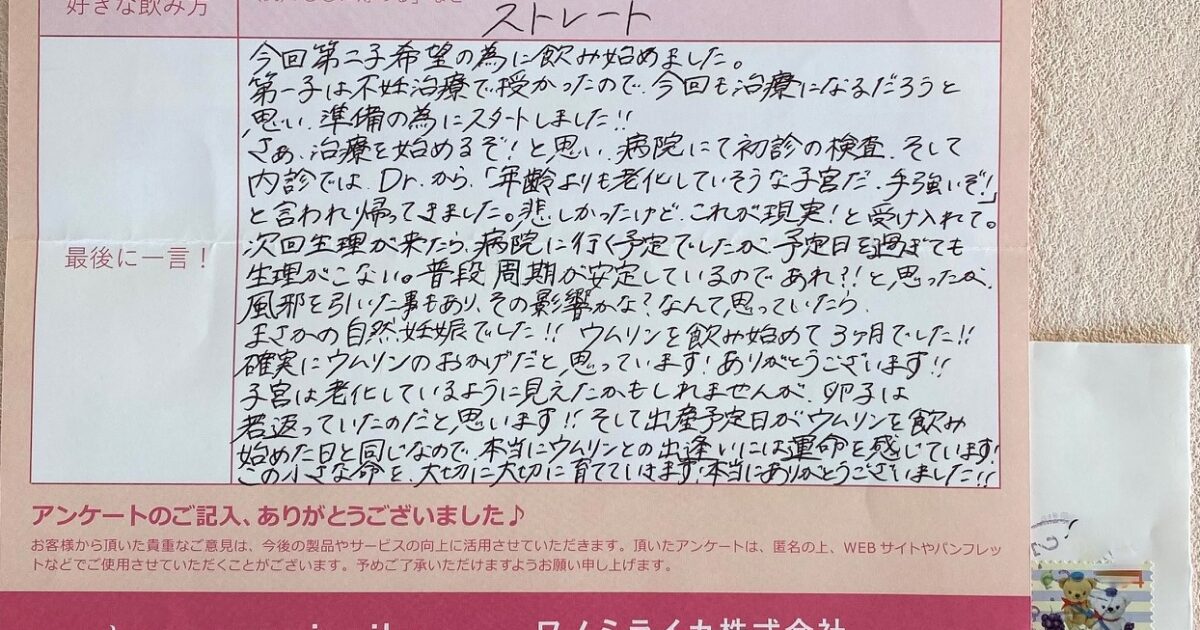 好きな飲み方
ストレート
最後に一言！
今回第二子希望の為に飲み始めました。
第一子は不妊治療で授かったので、今回も治療になるだろうと
思い、準備の為にスタートしました!!
さぁ、治療を始めるぞ！と思い、病院にて初診の検査、そして
内診では、Dr.から、「年齢よりも老化していそうな子宮だ、手強いぞ！」
と言われ帰ってきました。悲しかったけど、これが現実！と受け入れて。
次回生理が来たら、病院に行く予定でしたが、予定日を過ぎても
生理がこない。普段周期が安定しているので、あれ?!と思ったが、
風邪を引いた事もあり、その影響かな？なんて思っていたら、
まさかの自然妊娠でした!! ウムリンを飲み始めて3ヶ月でした!!
確実にウムリンのおかげだと思っています！ありがとうございます!!
子宮は老化しているように見えたかもしれませんが、卵子は
若返っていたのだと思います!! そして出産予定日がウムリンを飲み
始めた日と同じなので、本当にウムリンとの出逢いには運命を感じています！
この小さな命を、大切に大切に育てていけます！本当にありがとうございました!!
アンケートのご記入、ありがとうございました♪
お客様から頂いた貴重なご意見は、今後の製品やサービスの向上に活用させていただきます。頂いたアンケートは、匿名の上、WEBサイトやパンフレッ
トなどでご使用させていただくことがございます。予めご了承いただけますようお願い申し上げます。